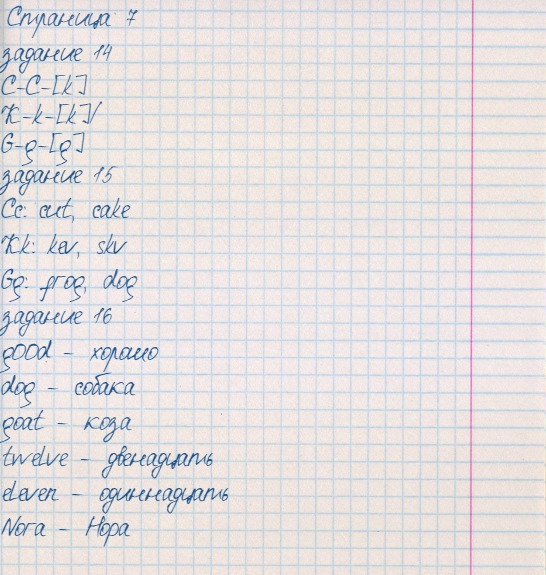 Страница 7
задание 14
C-C-[k]
K-k-[k]/
G-g-[g]
задание 15
Cc: cut, cake
Kk: kev, skv
Gg: frog, dog
задание 16
gOOd - хорошо
dog - собака
goat - коза
twelve - двенадцать
eleven - одиннадцать
Nora - Нора